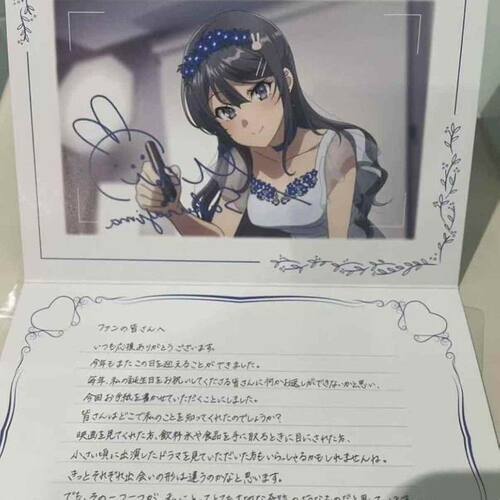 ファンの皆さんへ
いつも応援ありがとうございます。
今年もまたこの日を迎えることができました。
毎年、私の誕生日をお祝いしてくださる皆さんに何かお返しができないかと思い、
今回お手紙を書かせていただくことにしました。
皆さんはどこで私のことを知ってくれたのでしょうか?
映画を見てくれた方、飲料水や食品を手に取るときに目にされた方、
小さい頃に出演したドラマを見ていただいた方もいらっしゃるかもしれませんね。
きっとそれぞれ出会いの形は違うのかなと思います。
でも、その一つ一つが